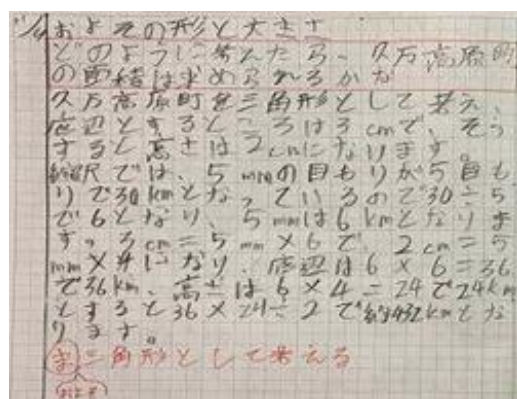 11/9 およその形と大きさ
どのように考えたら、久万高原町
の面積は求められるかな
久万高原町を三角形として考え、
底辺とするところは3cmで、そう
すると高さは2cmになります。
縮尺では、5mmの目もりが5目も
りで30kmとなっているので30÷5
で6となり、5mmは6kmとなりま
す。3cm=5mm×6で、2cm=5
mm×4になり、底辺は6×6=36
で36km、高さは6×4=24で24km
とすると36×24÷2で約432kmとな
ります。
ま 三角形として考える
およそ